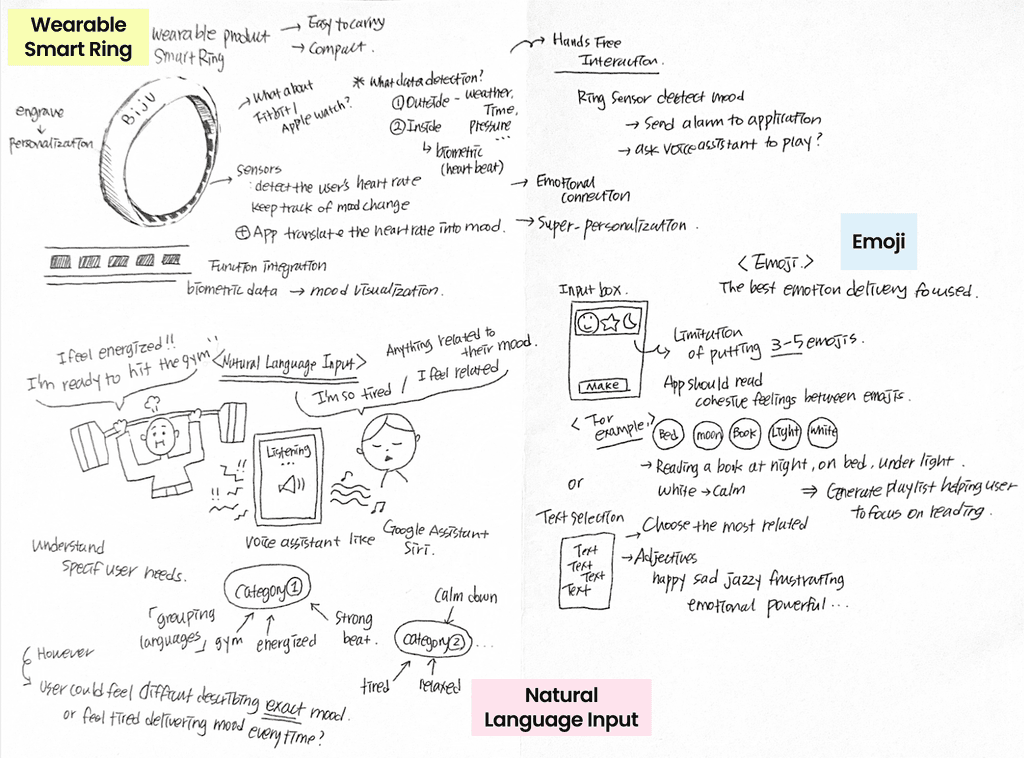 Wearable
Smart Ring
wearable product
Smart Ring
→ Easy to carry
→ Compact.
engrave
↓
personalization
BIJU
→ What about
Fitbit /
Apple watch?
* What data detection?
① Outside - weather,
Time,
② Inside pressure
...
↳ biometric
(heart beat)
→ Sensors
: detect the user's heart rate
keep track of mood change
⊕ App translate the heart rate into mood.
Function integration
biometric data → mood visualization.
→ Hands Free
Interaction.
Ring Sensor detect mood
→ Send alarm to application
→ ask voice assistant to play?
→ Emotional
connection
→ Super-personalization.
I feel energized!!
I'm ready to hit the gym"
<Natural Language Input>
Anything related to
their mood.
I'm so tired / I feel related
Listening
...
!!
!!
Voice assistant like Google Assistant
Siri.
Understand
specif user needs.
Category ①
「grouping
languages」
gym
energized
strong
beat.
Calm down
Category ② ...
tired
relaxed
However
→ User could feel difficult describing exact mood.
or feel tired delivering mood every time?
Natural
Language Input
Emoji
<Emoji>
The best emotion delivery focused.
Input box.
Make
Limitation
of putting 3-5 emojis.
App should read
cohesive feelings between emojis.
<For
example>
Bed
moon
Book
Light
White
→ Reading a book at night, on bed, under light.
White → Calm
⇒ Generate playlist helping user
to focus on reading.
or
Text selection
Text
Text
Text
Text
→ Choose the most related
→ Adjectives
happy sad jazzy frustrating
emotional powerful ...